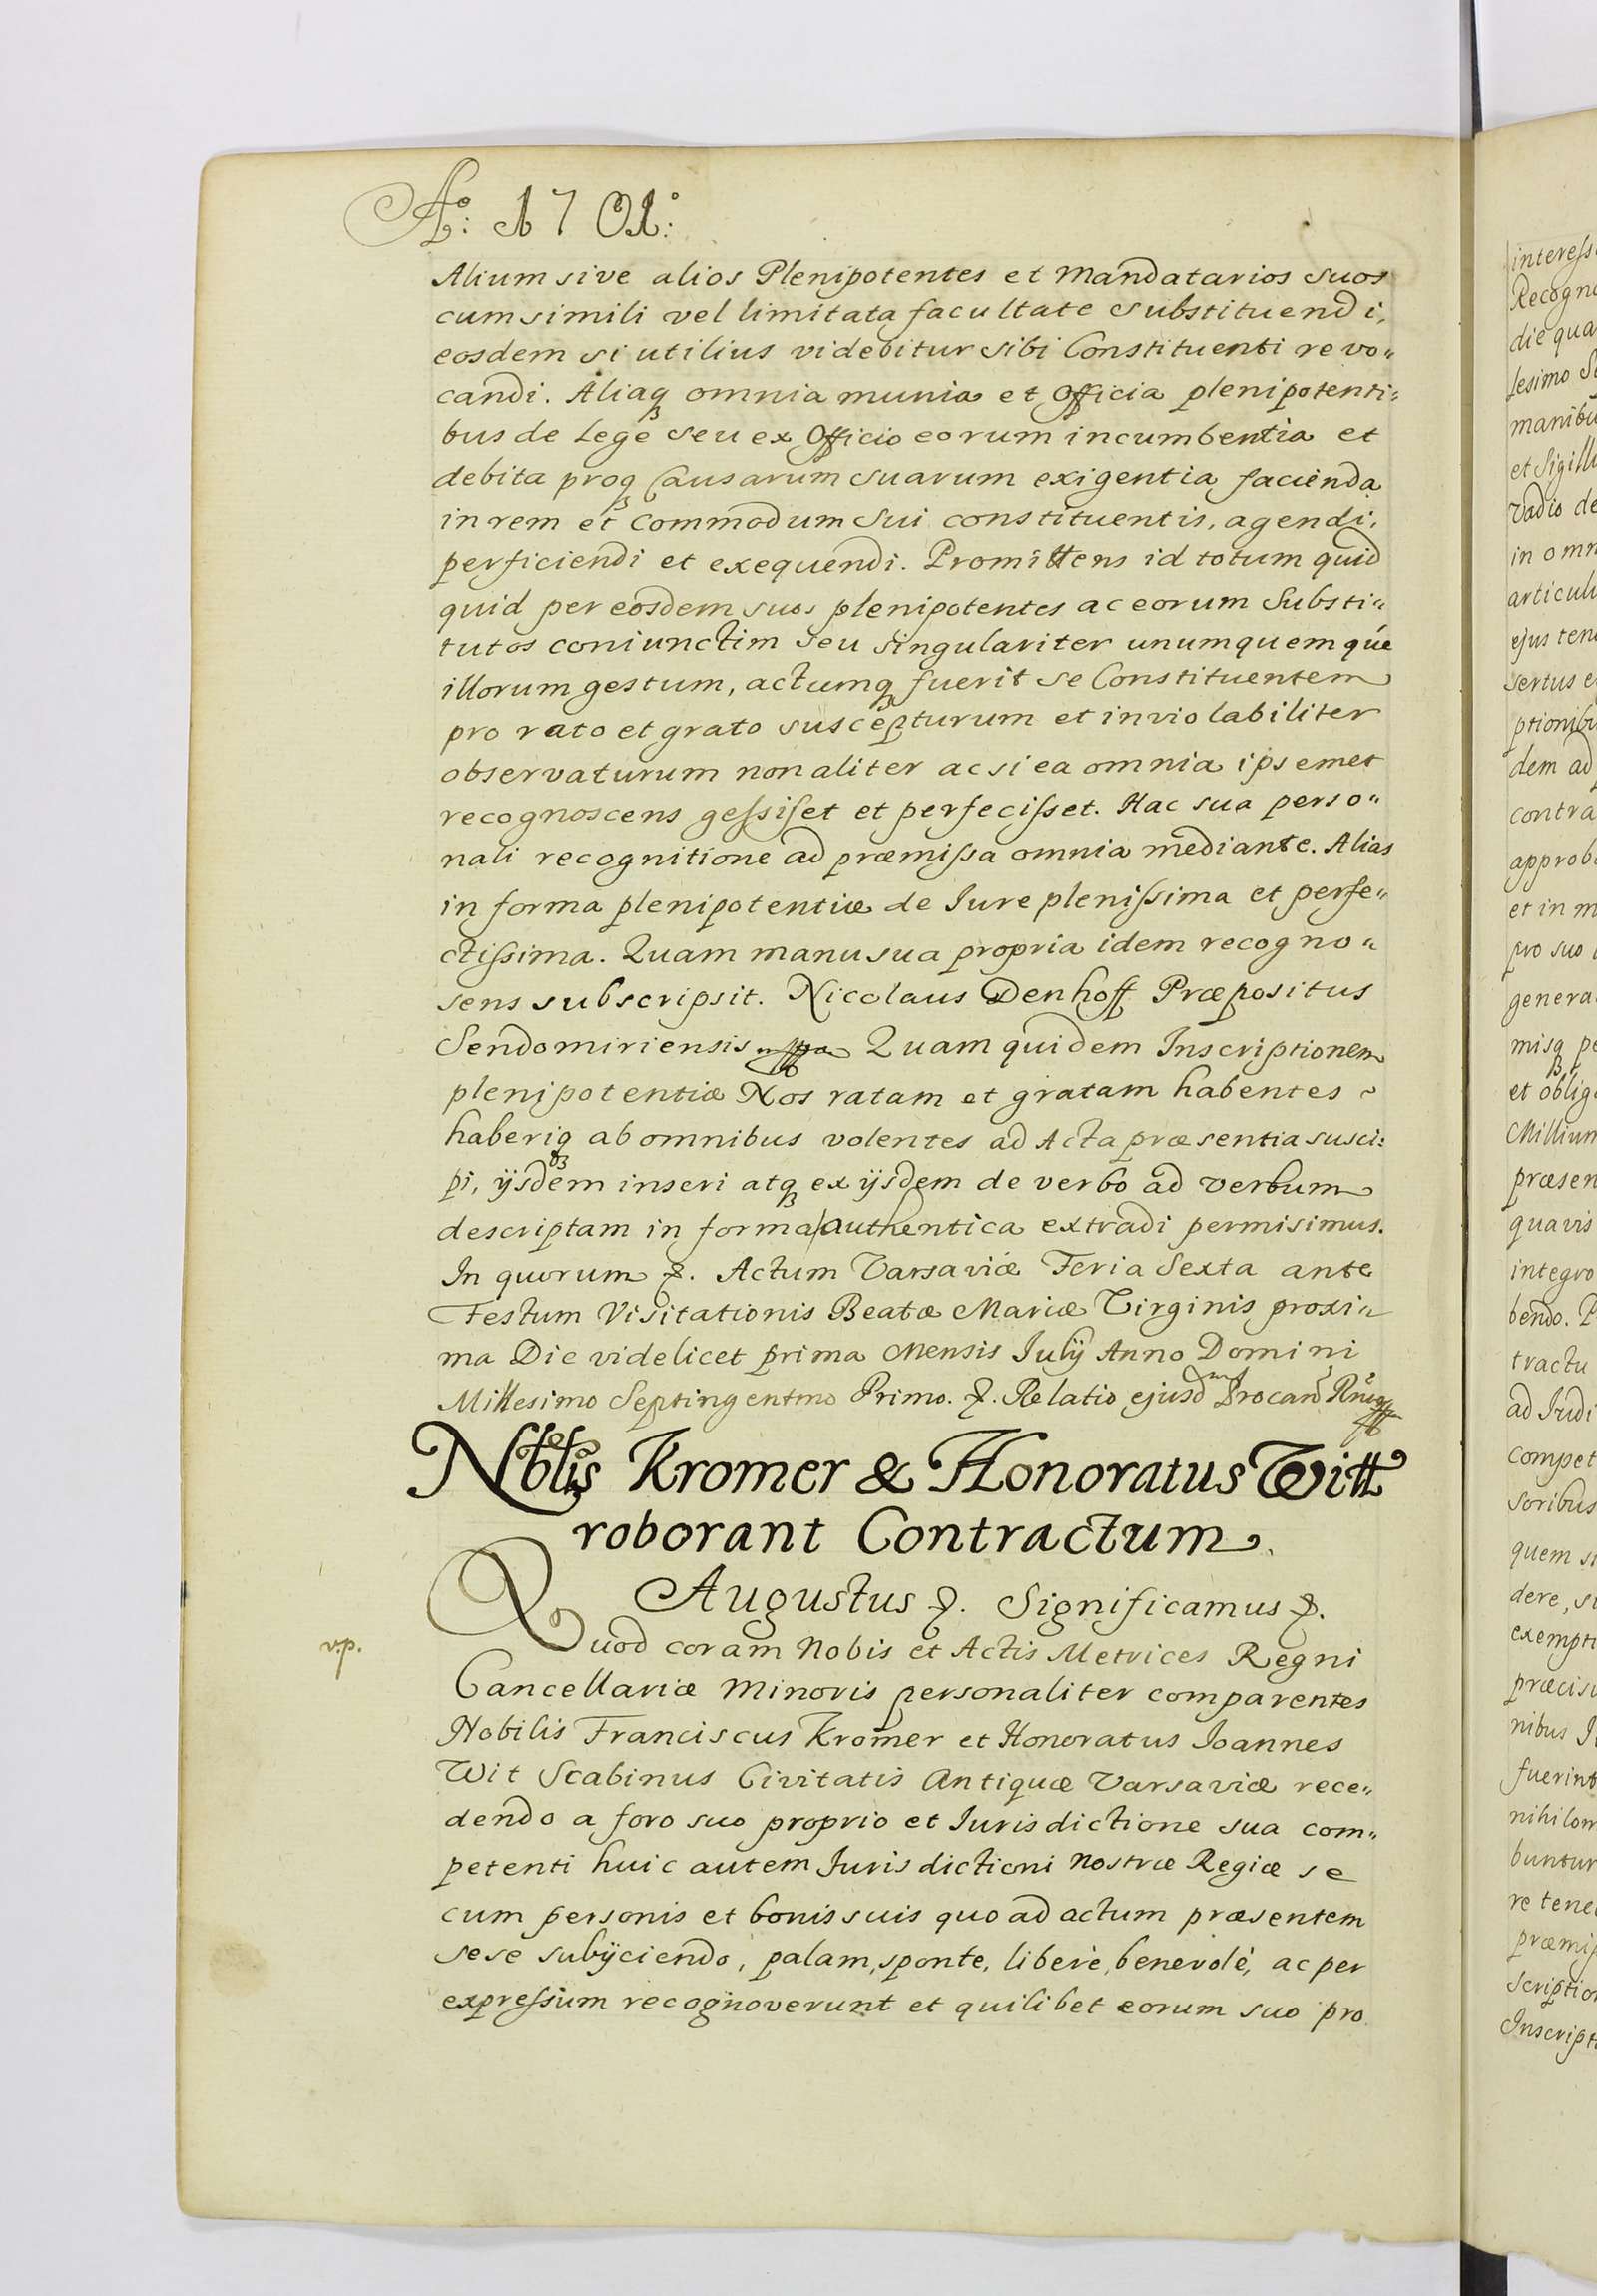 Aº: 1701º:
Alium sive alios Plenipotentes et Mandatarios suos
cum simili vel limitata facultate substituendi,
eosdem si utilius videbitur sibi Constituenti revo„
candi. Aliaq₃ omnia munia et Officia plenipotenti„
bus de Lege seu ex Officio eorum incumbentia et
debita proq₃ Causarum suarum exigentia facienda
in rem et Commodum sui constituentis, agendi,
perficiendi et exequendi. Promittens id totum quid
quid per eosdem suos plenipotentes ac eorum Substi„
tutos coniunctim seu singulariter unumquemque
illorum gestum, actumq₃ fuerit se Constituentem
pro rato et grato suscepturum et inviolabiliter
observaturum non aliter ac si ea omnia ipsemet
recognoscens geſsiſet et perfeciſset. Hac sua perso„
nali recognitione ad præmiſsa omnia mediante. Alias
in forma plenipotentiæ de Iure pleniſsima et perfe„
ctiſsima. Quam manu sua propria idem recogno„
sens subscripsit. Nicolaus Denhoff Præpositus
Sendomiriensis mppa Quam quidem Inscriptionem
plenipotentiæ Nos ratam et gratam habentes ~
haberiq₃ ab omnibus volentes ad Acta præsentia susci:
pi, ijsdem inseri atq₃ ex ijsdem de verbo ad verbum
descriptam in forma authentica extradi permisimus.
In quorum &. Actum Varsaviæ Feria Sexta ante
Festum Visitationis Beatæ Mariæ Virginis proxi„
ma Die videlicet prima Mensis Iulij Anno Domini
Millesimo Septingentmo Primo. &. Relatio ejusd Procan
Nobilis Kromer & Honoratus Witt
roborant Contractum.
Augustus &. Significamus &.
v.p.
Quod coram Nobis et Actis Metrices Regni
Cancellariæ Minoris personaliter comparentes
Nobilis Franciscus Kromer et Honoratus Ioannes
Wit Scabinus Civitatis Antiquæ Varsaviæ rece„
dendo a foro suo proprio et Iurisdictione sua com„
petenti huic autem Iurisdictioni Nostræ Regiæ se
cum personis et bonis suis quo ad actum præsentem
sese subijciendo, palam, sponte, liberè, benevolè, ac per
expreſsum recognoverunt et quilibet eorum suo pro
intereſs
Recogn
die qua
lesimo
manibu
et Sigill
Vadio de
in omn
articul
ejus ten
sertus e
ptionib
dem ad
contra
approb
et in m
pro suo
genera
misq₃ pe
et oblig
Millium
præsen
quavis
integro
bendo. P
tractu
ad Iudi
compet
soribus
quem si
dere, si
exempt
præcis
nibus I
fuerint
nihilom
buntur
re tene
præmiſ
scriptio
Inscript